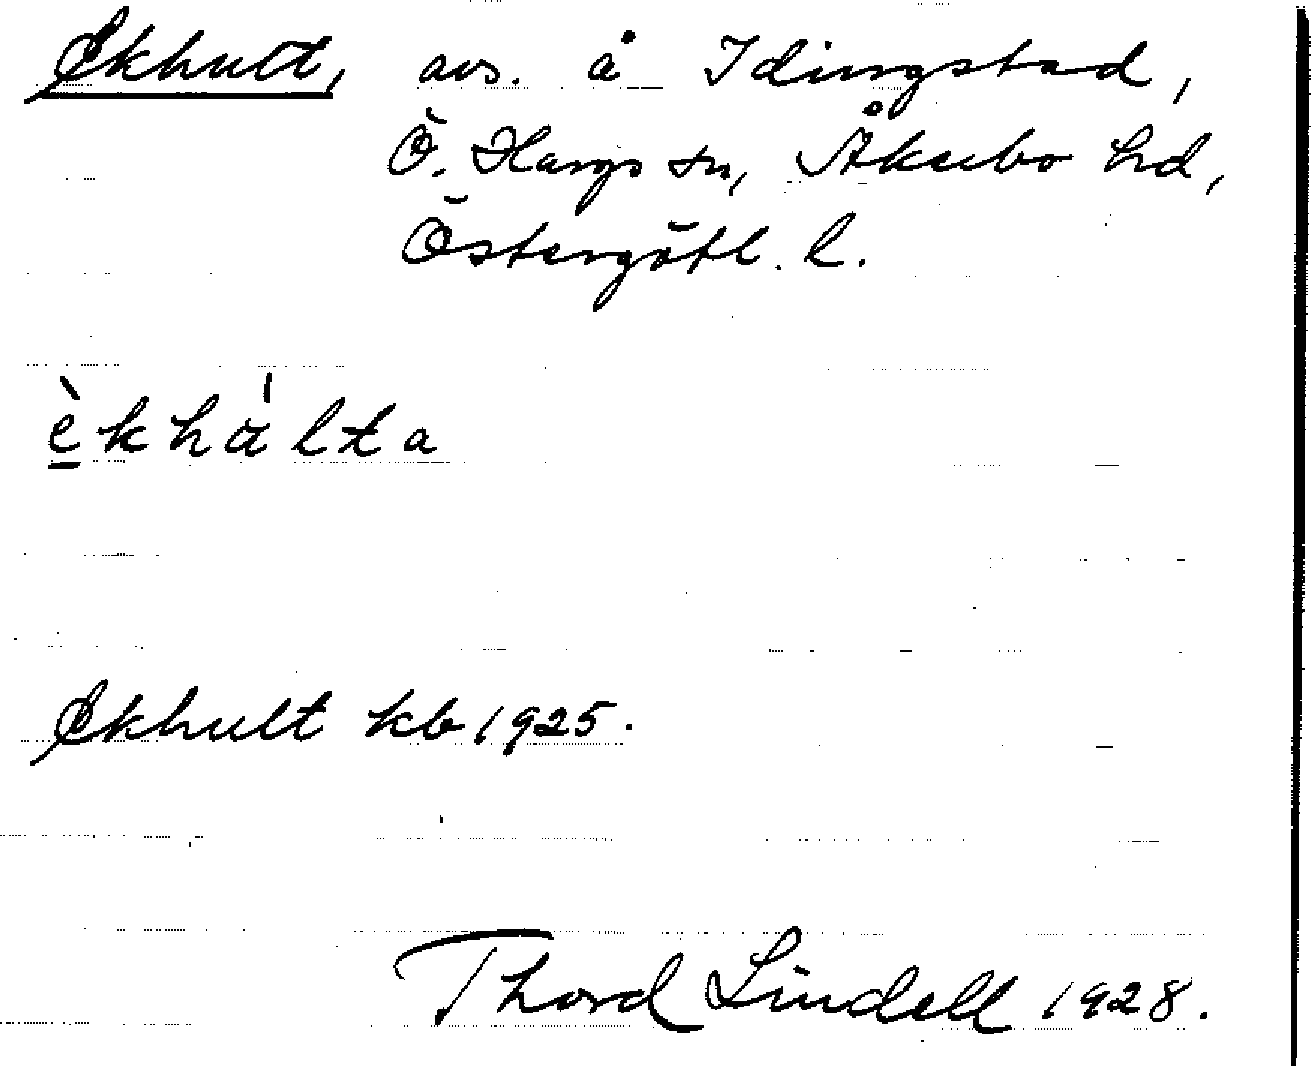 Ekhult, avs. å Idingstad,
Ö. Hargs sn, Åkerbo hd,
Östergötl. l.
èkhálta
Ekhult kb 1925.
Thord Lindell 1928.